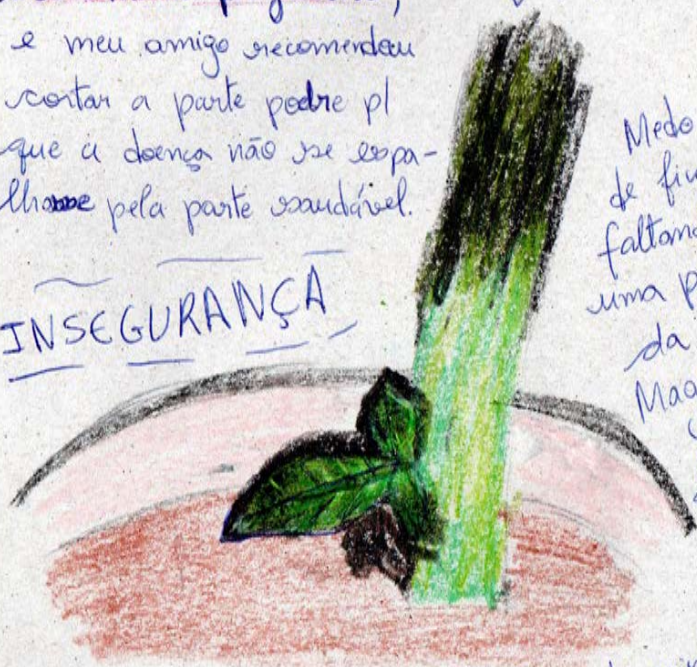 e meu amigo recomendou
cortar a parte podre p/
que a doença não se espa-
lhasse pela parte saudável.
INSEGURANÇA
Medo
de
faltan
uma
da